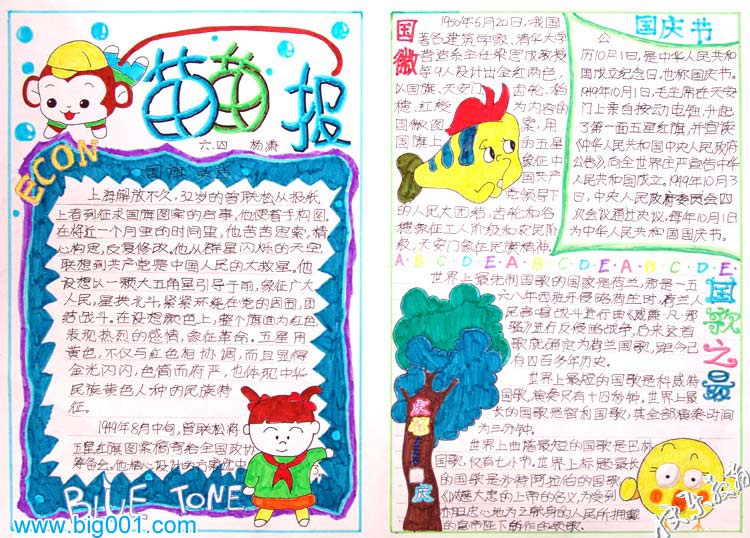 苗苗报
六.四 杨康
ECON
国旗史话
上海解放不久,32岁的曾联松从报纸
上看到征求国旗图案的启事,他便着手构图。
在将近一个月里的时间里,他苦苦思索,精
心构思,反复修改。他从群星闪烁的天空,
联想到共产党是中国人民的大救星。他
设想以一颗大五角星引导于前,象征广大
人民,星拱北斗紧紧环绕在党的周围,团
结战斗。在设想颜色上,整个旗面为红色
表现热烈的感情,象征革命,五星用
黄色,不仅与红色相协调,而且显得
金光闪闪,色简而府严,也体现中华
民族黄色人种的民族特
征。
1949年8月中旬,曾联松将
五星红旗图案稿寄给全国政协
筹备会。他精心设计的方案选中
BLUE TONE
www.big001.com
国徽
1950年6月20日,我国
著名建筑学家、清华大学
营造系主任梁思成教授
等9人设计出金红两色,
以国旗、天安门、齿轮、稻
穗、红绶为内容的
国徽图案,用
国旗上的五星
象征中国
共产党领导下
的人民大团结,齿轮和谷
穗象征工人阶级和农民阶
级,天安门象征民族精神。
国庆节
公
历10月1日,是中华人民共和
国成立纪念日,也称国庆节。
1949年10月1日,毛主席在天安
门上亲自按动电钮,升起
了第一面五星红旗,并宣读
《中华人民共和国中央人民政府
公告》,向全世界庄严宣告中华
人民共和国成立。1949年10月3
日,中央人民政府委员会四
次会议通过决议,每年10月1日
为中华人民共和国国庆节。
A·B·C·D·E·A·B·C·D·E·A·B·C·D·E
国歌之最
世界上最先制国歌的国家是荷兰,那是一五
六八年西班牙侵略荷兰时,荷兰人
民高唱战斗进行曲《威廉·凡·那
骚》进行反侵略战争,后来这首
歌就确定为荷兰国歌,距今已
有四百多年历史。
世界上最短的国歌是科威特
国歌,演奏只有十四秒钟。世界上最
长的国歌是智利国歌,其全部演奏时间
为三分钟。
世界上曲谱最短的国歌是巴林
国歌,仅有七小节。世界上标题最长
的国歌是沙特阿拉伯的国歌
的皇帝陛下所作的颂歌。
庆祝
国
庆